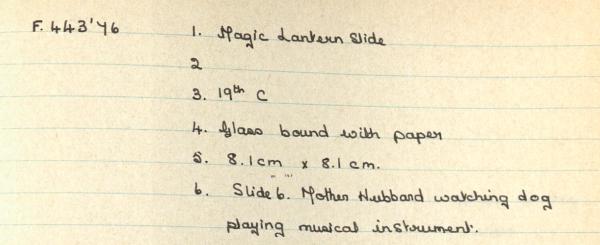 F. 443'76 1. Magic Lantern Slide
2
3. 19th C
4. Glass bound with paper
5. 8.1cm x 8.1cm.
6. Slide 6. Mother Hubbard watching dog
playing musical instrument.